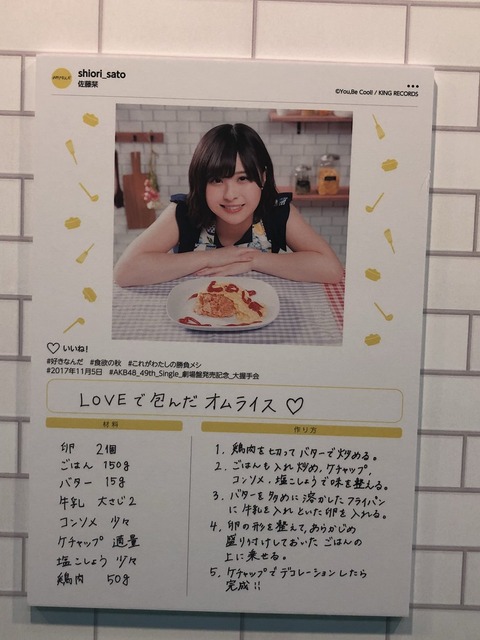 shiori_sato
佐藤栞
©You,Be Cool! / KING RECORDS
いいね!
#好きなんだ #食欲の秋 #これがわたしの勝負メシ
#2017年11月5日 #AKB48_49th_Single_劇場盤発売記念_大握手会
LOVEで包んだオムライス♡
材料
卵 2個
ごはん 150g
バター 15g
牛乳 大さじ2
コンソメ 少々
ケチャップ 適量
塩こしょう 少々
鶏肉 50g
作り方
1. 鶏肉を切ってバターで炒める。
2. ごはんも入れ炒め、ケチャップ、
コンソメ、塩こしょうで味を整える。
3. バターを多めに溶かしたフライパン
に牛乳を入れといた卵を入れる。
4. 卵の形を整えて、あらかじめ
盛り付けしておいたごはんの
上に乗せる。
5. ケチャップでデコレーションしたら
完成!!